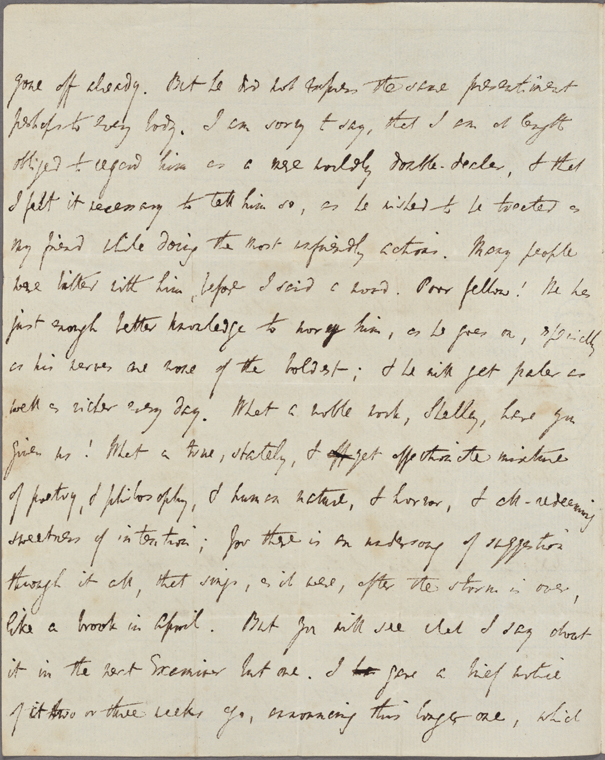 gone off already. But he did not express the same presentiment
perhaps to every body. I am sorry to say, that I am at length
obliged to regard him as a mere worldly double-dealer, & that
I felt it necessary to tell him so, as he wished to be treated as
my friend while doing the most unfriendly actions. Many people
were bitter with him, before I said a word. Poor fellow! He has
just enough better knowledge to worry him, as he goes on, especially
as his nerves are none of the boldest; & he will get paler as
well as richer every day. What a noble work, Shelley, have you
given us! What a true, stately, & yet affectionate mixture
of poetry, & philosophy, & human nature, & horror, & all-redeeming
sweetness of intention; for there is an undersong of suggestion
through it all, that sings, as it were, after the storm is over,
like a brook in April. But you will see what I say about
it in the next Examiner but one. I gave a brief notice
of it two or three weeks ago, announcing this longer one, which